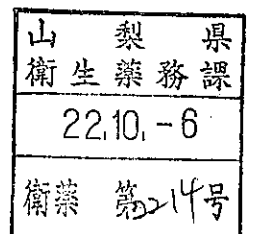 山梨県
衛生薬務課
22.10.-6
衛薬 第2214号